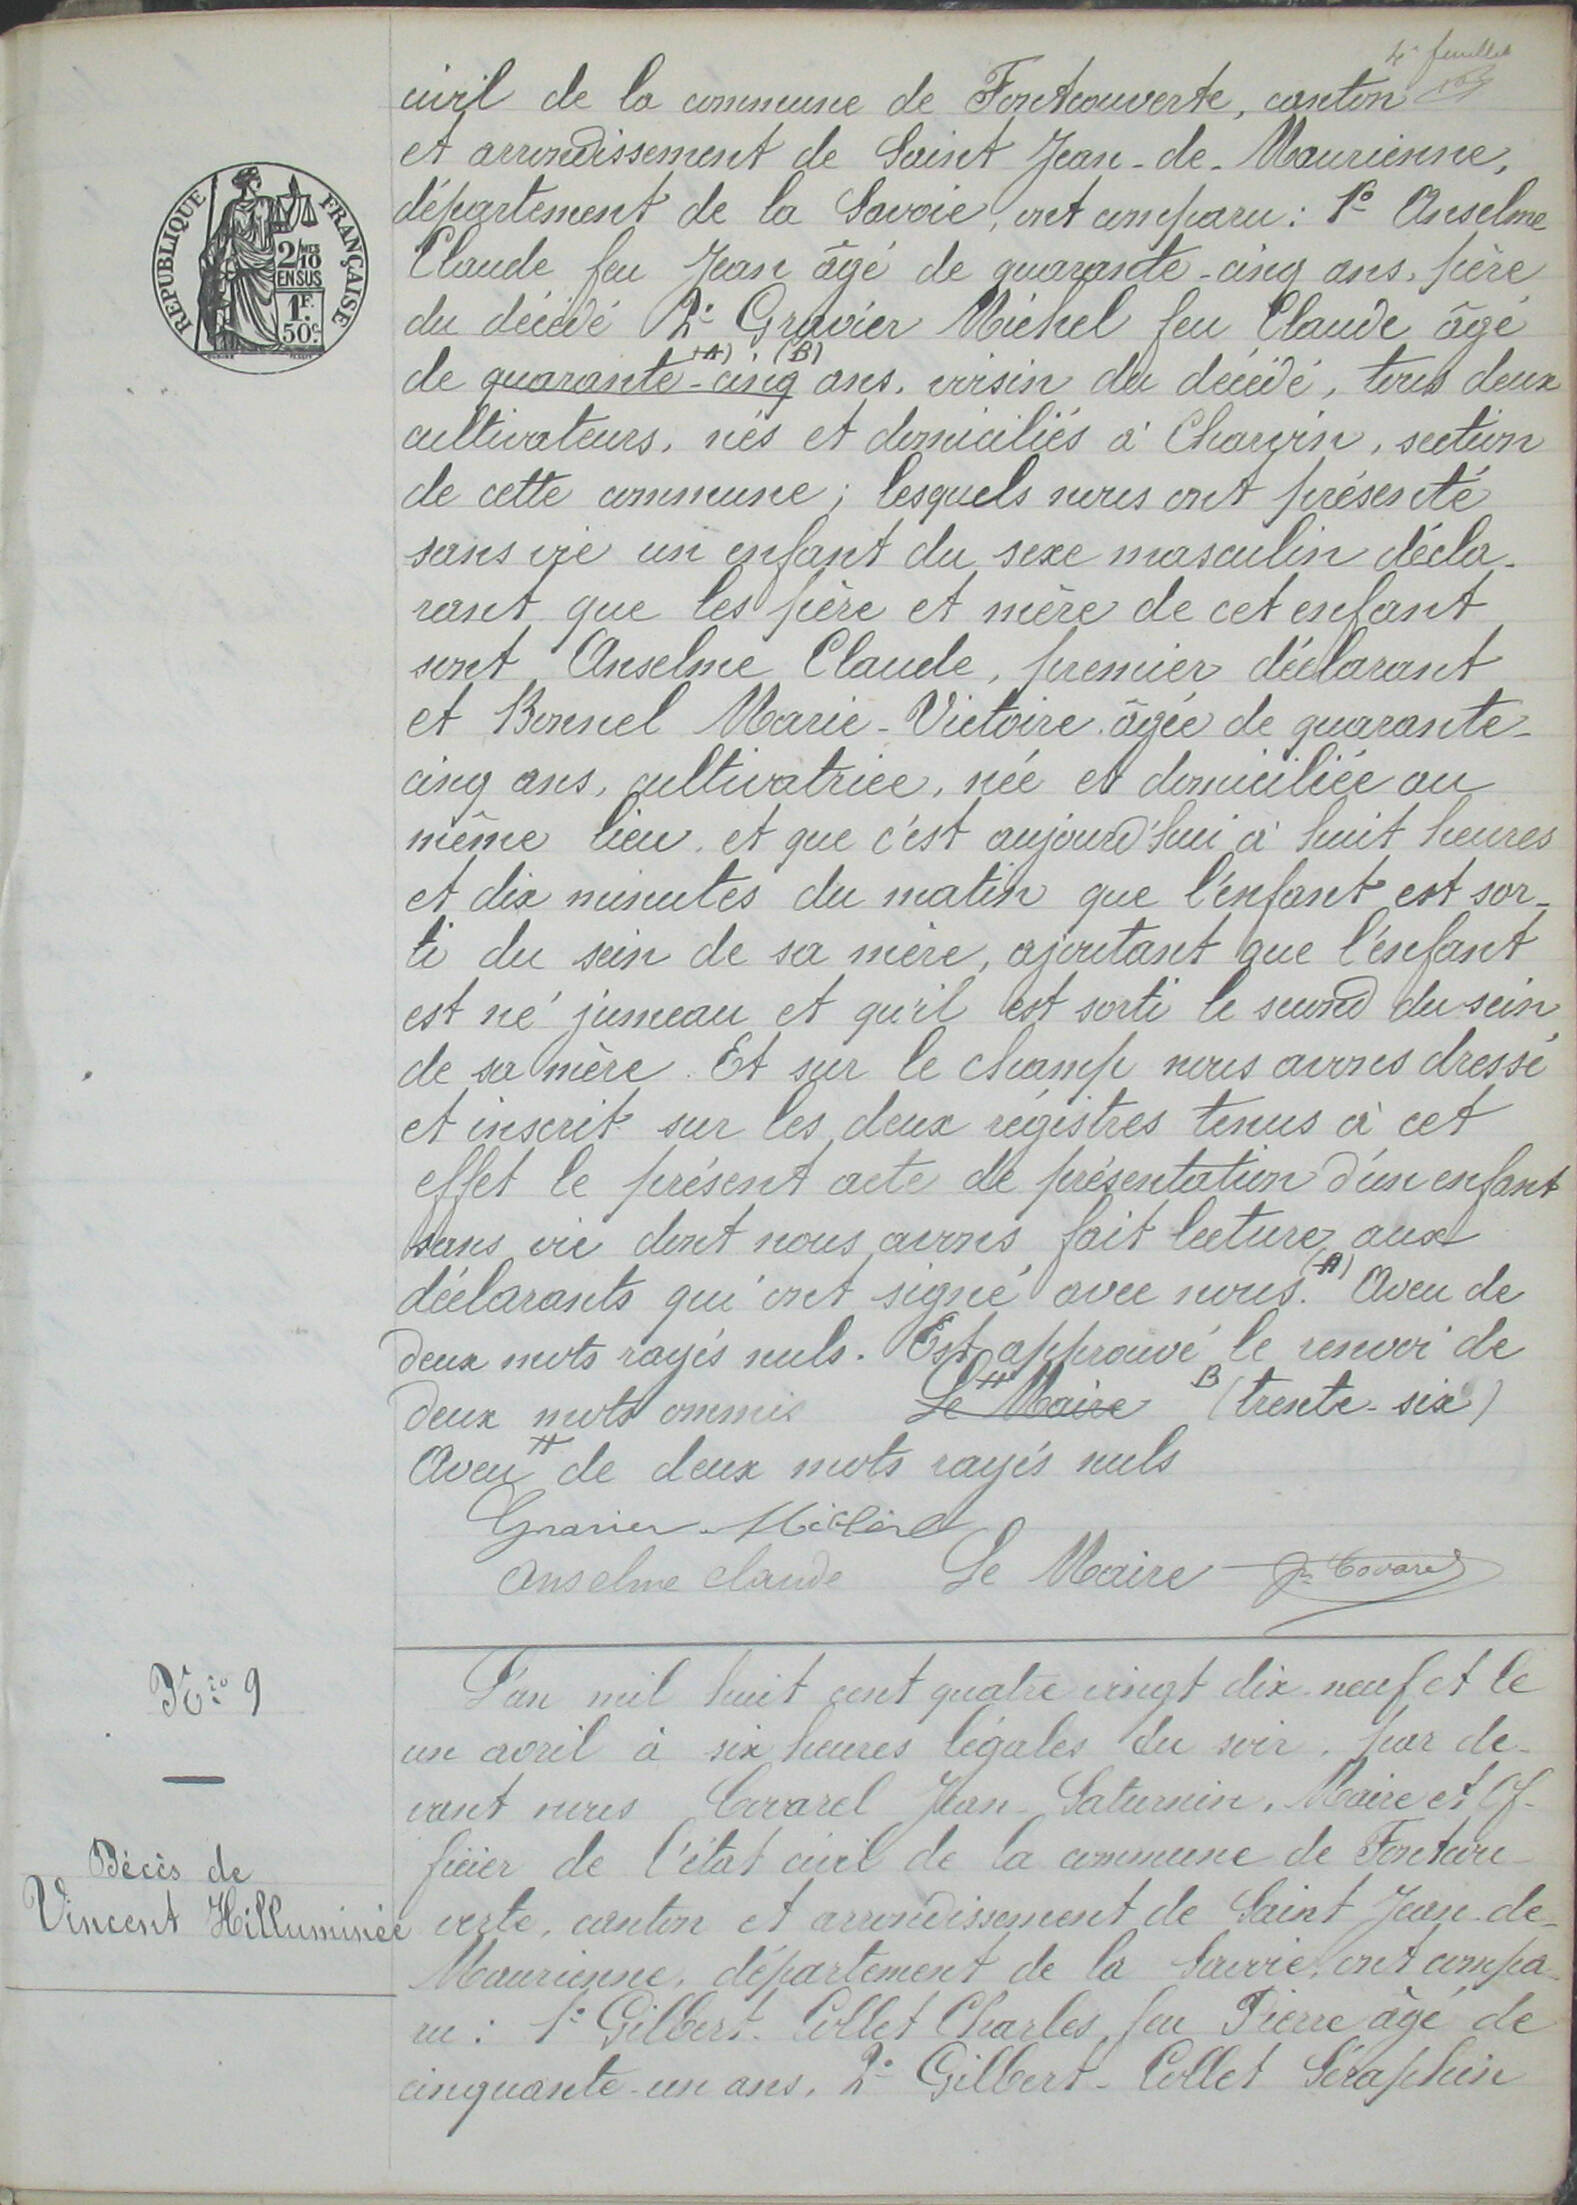 4e feuillet
civil de la commune de Fontcouverte, canton
et arrondissement de Saint Jean-de-Maurienne,
département de la Savoie, ont comparu : 1o Anselme
Claude feu Jean âgé de quarante-cinq ans, père
du décédé 2o Gravier Michel feu Claude âgé
(A) (B)
de quarante-cinq ans, voisin du décédé, tous deux
cultivateurs, nés et domiciliés à Charvin, section
de cette commune ; lesquels nous ont présenté
sans vie un enfant du sexe masculin décla-
rant que les père et mère de cet enfant
sont Anselme Claude, premier déclarant
et Bonnel Marie-Victoire âgée de quarante-
cinq ans, cultivatrice, née et domiciliée au
même lieu, et que c'est aujourd'hui à huit heures
et dix minutes du matin que l'enfant est sor-
ti du sein de sa mère, ajoutant que l'enfant
est né jumeau et qu'il est sorti le second du sein
de sa mère. Et sur le champ nous avons dressé
et inscrit sur les deux régistres tenus à cet
effet le présent acte de présentation d'un enfant
sans vie dont nous avons fait lecture aux
déclarants qui ont signé avec nous. (A) Aveu de
deux mots rayés nuls. Est approuvé le renvoi de
deux mots ommis Le Maire B (trente-six)
Aveu de deux mots rayés nuls
Gravier Michel
Anselme Claude Le Maire Jn Covarel
RÉPUBLIQUE FRANÇAISE
2/10 MES
EN SUS
1F.
50c.
No 9
Décès de
Vincent Hilluminée
L'an mil huit cent quatre vingt dix-neuf et le
un avril à six heures légales du soir, par de-
vant nous Covarel Jean-Saturnin, Maire et Of-
ficier de l'état civil de la commune de Fontcou-
verte, canton et arrondissement de Saint Jean-de-
Maurienne, département de la Savoie, ont compa-
ru : 1o Gilbert-Collet Charles feu Pierre âgé de
cinquante-un ans, 2o Gilbert-Collet Séraphin